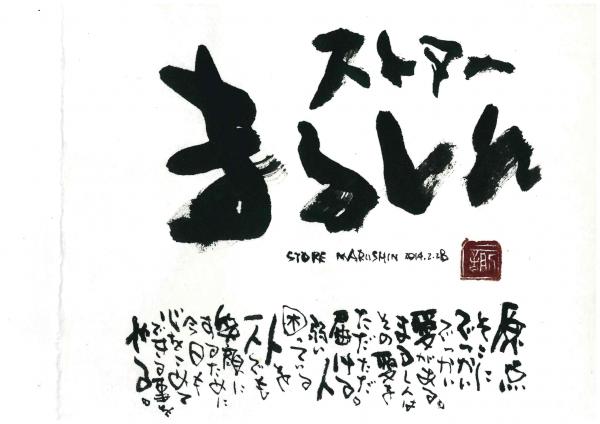 ストアー
まるしん
STORE MARUSHIN 2014.2.28
原点
そこに
でっかい
でっかい
愛がある。
まるしんは
その愛を
ただただただ
届ける。
弱い人
困っている
人を
一人でも
笑顔に
するために
今日も
心をこめて
できる事を
やる。